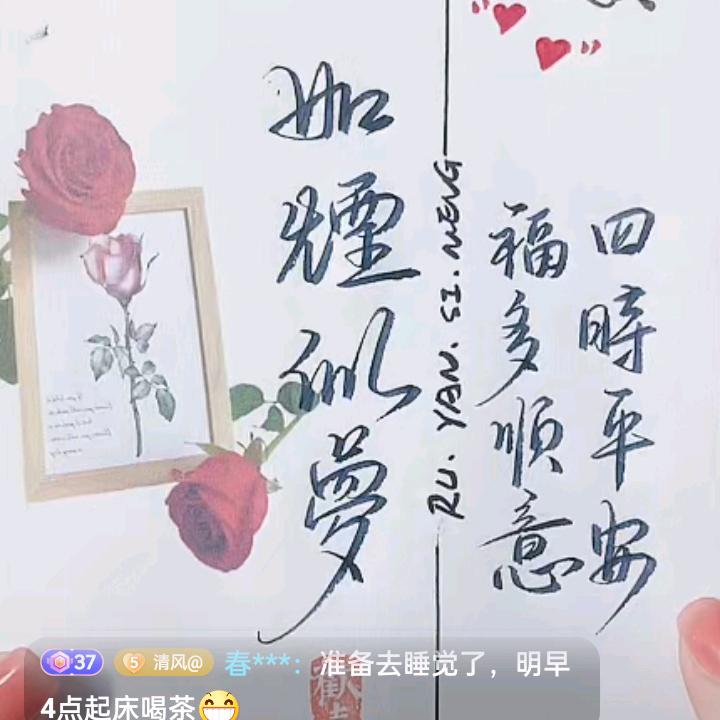 四時平安
福多順意
RU. YAN. SI. MENG
如煙似夢
37 5 清风@ 春***：准备去睡觉了，明早
4点起床喝茶😁